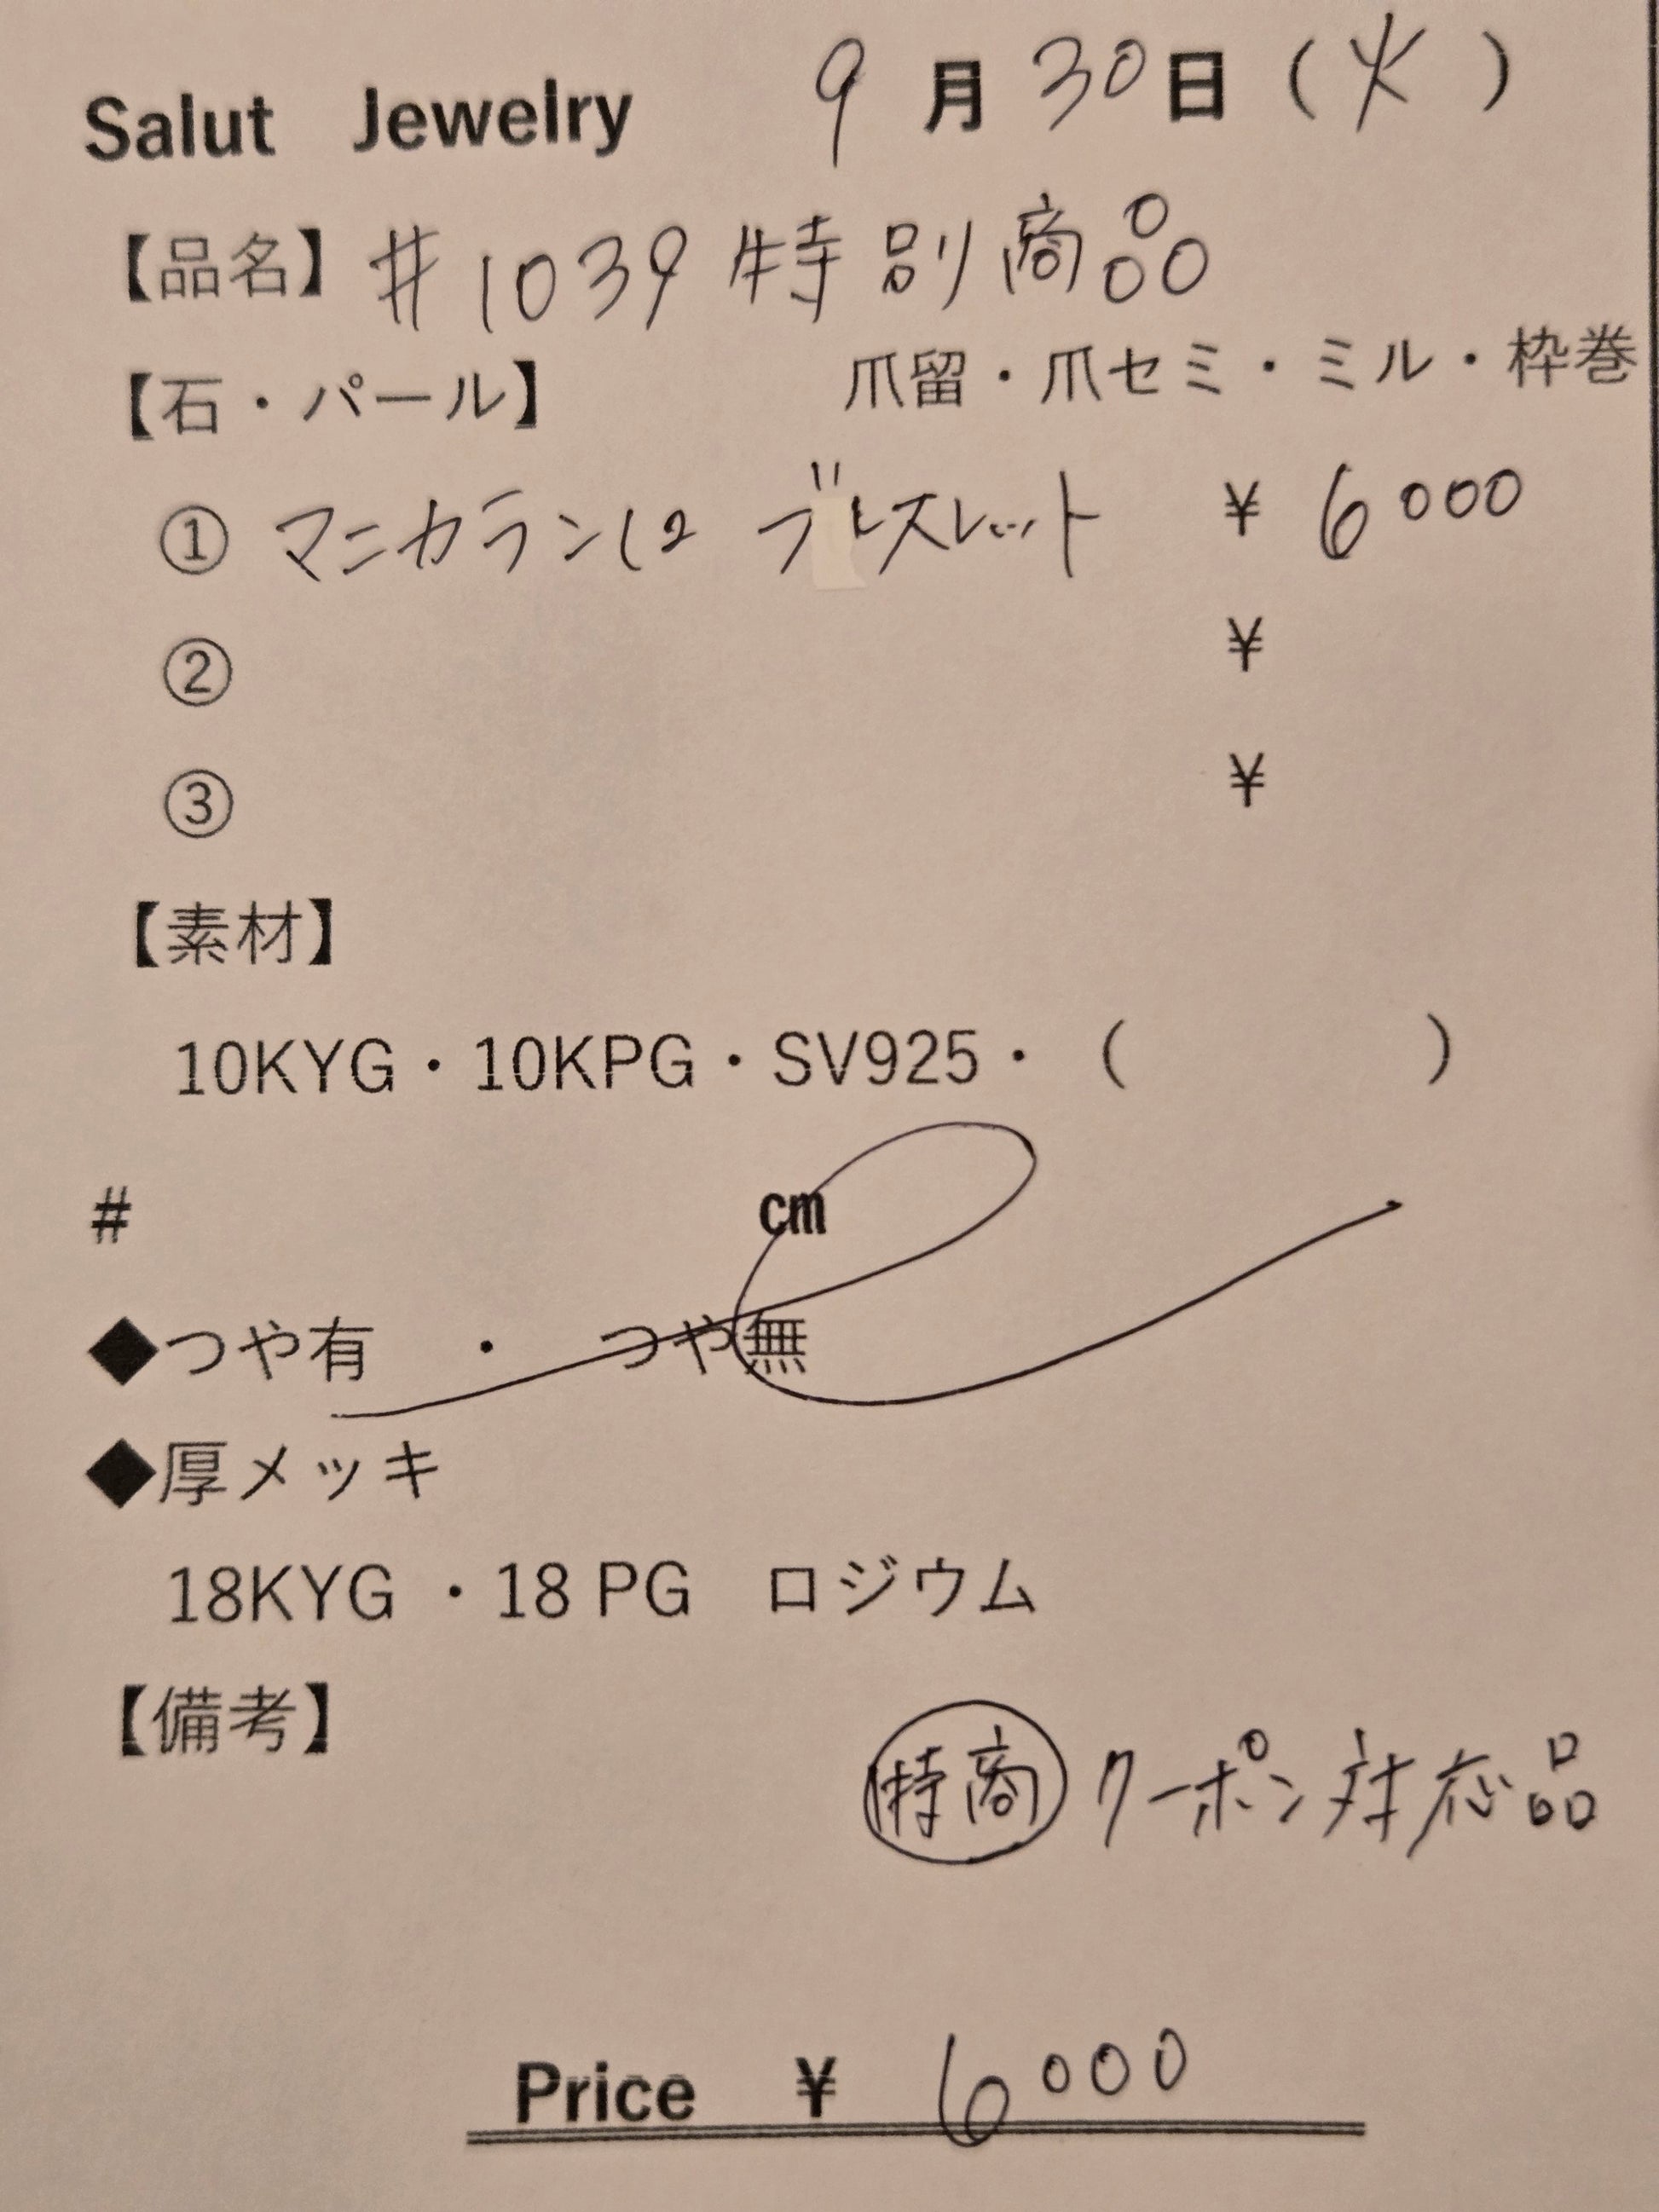 Salut Jewelry 9月30日(火)
【品名】#1039 特別商品
【石・パール】 爪留・爪セミ・ミル・枠巻
① マニカラン ブレスレット ¥6000
② ¥
③ ¥
【素材】
10KYG・10KPG・SV925・( )
# cm
◆つや有 ・ つや無
◆厚メッキ
18KYG ・18 PG ロジウム
【備考】
特商 クーポン対応品
Price ¥ 6000